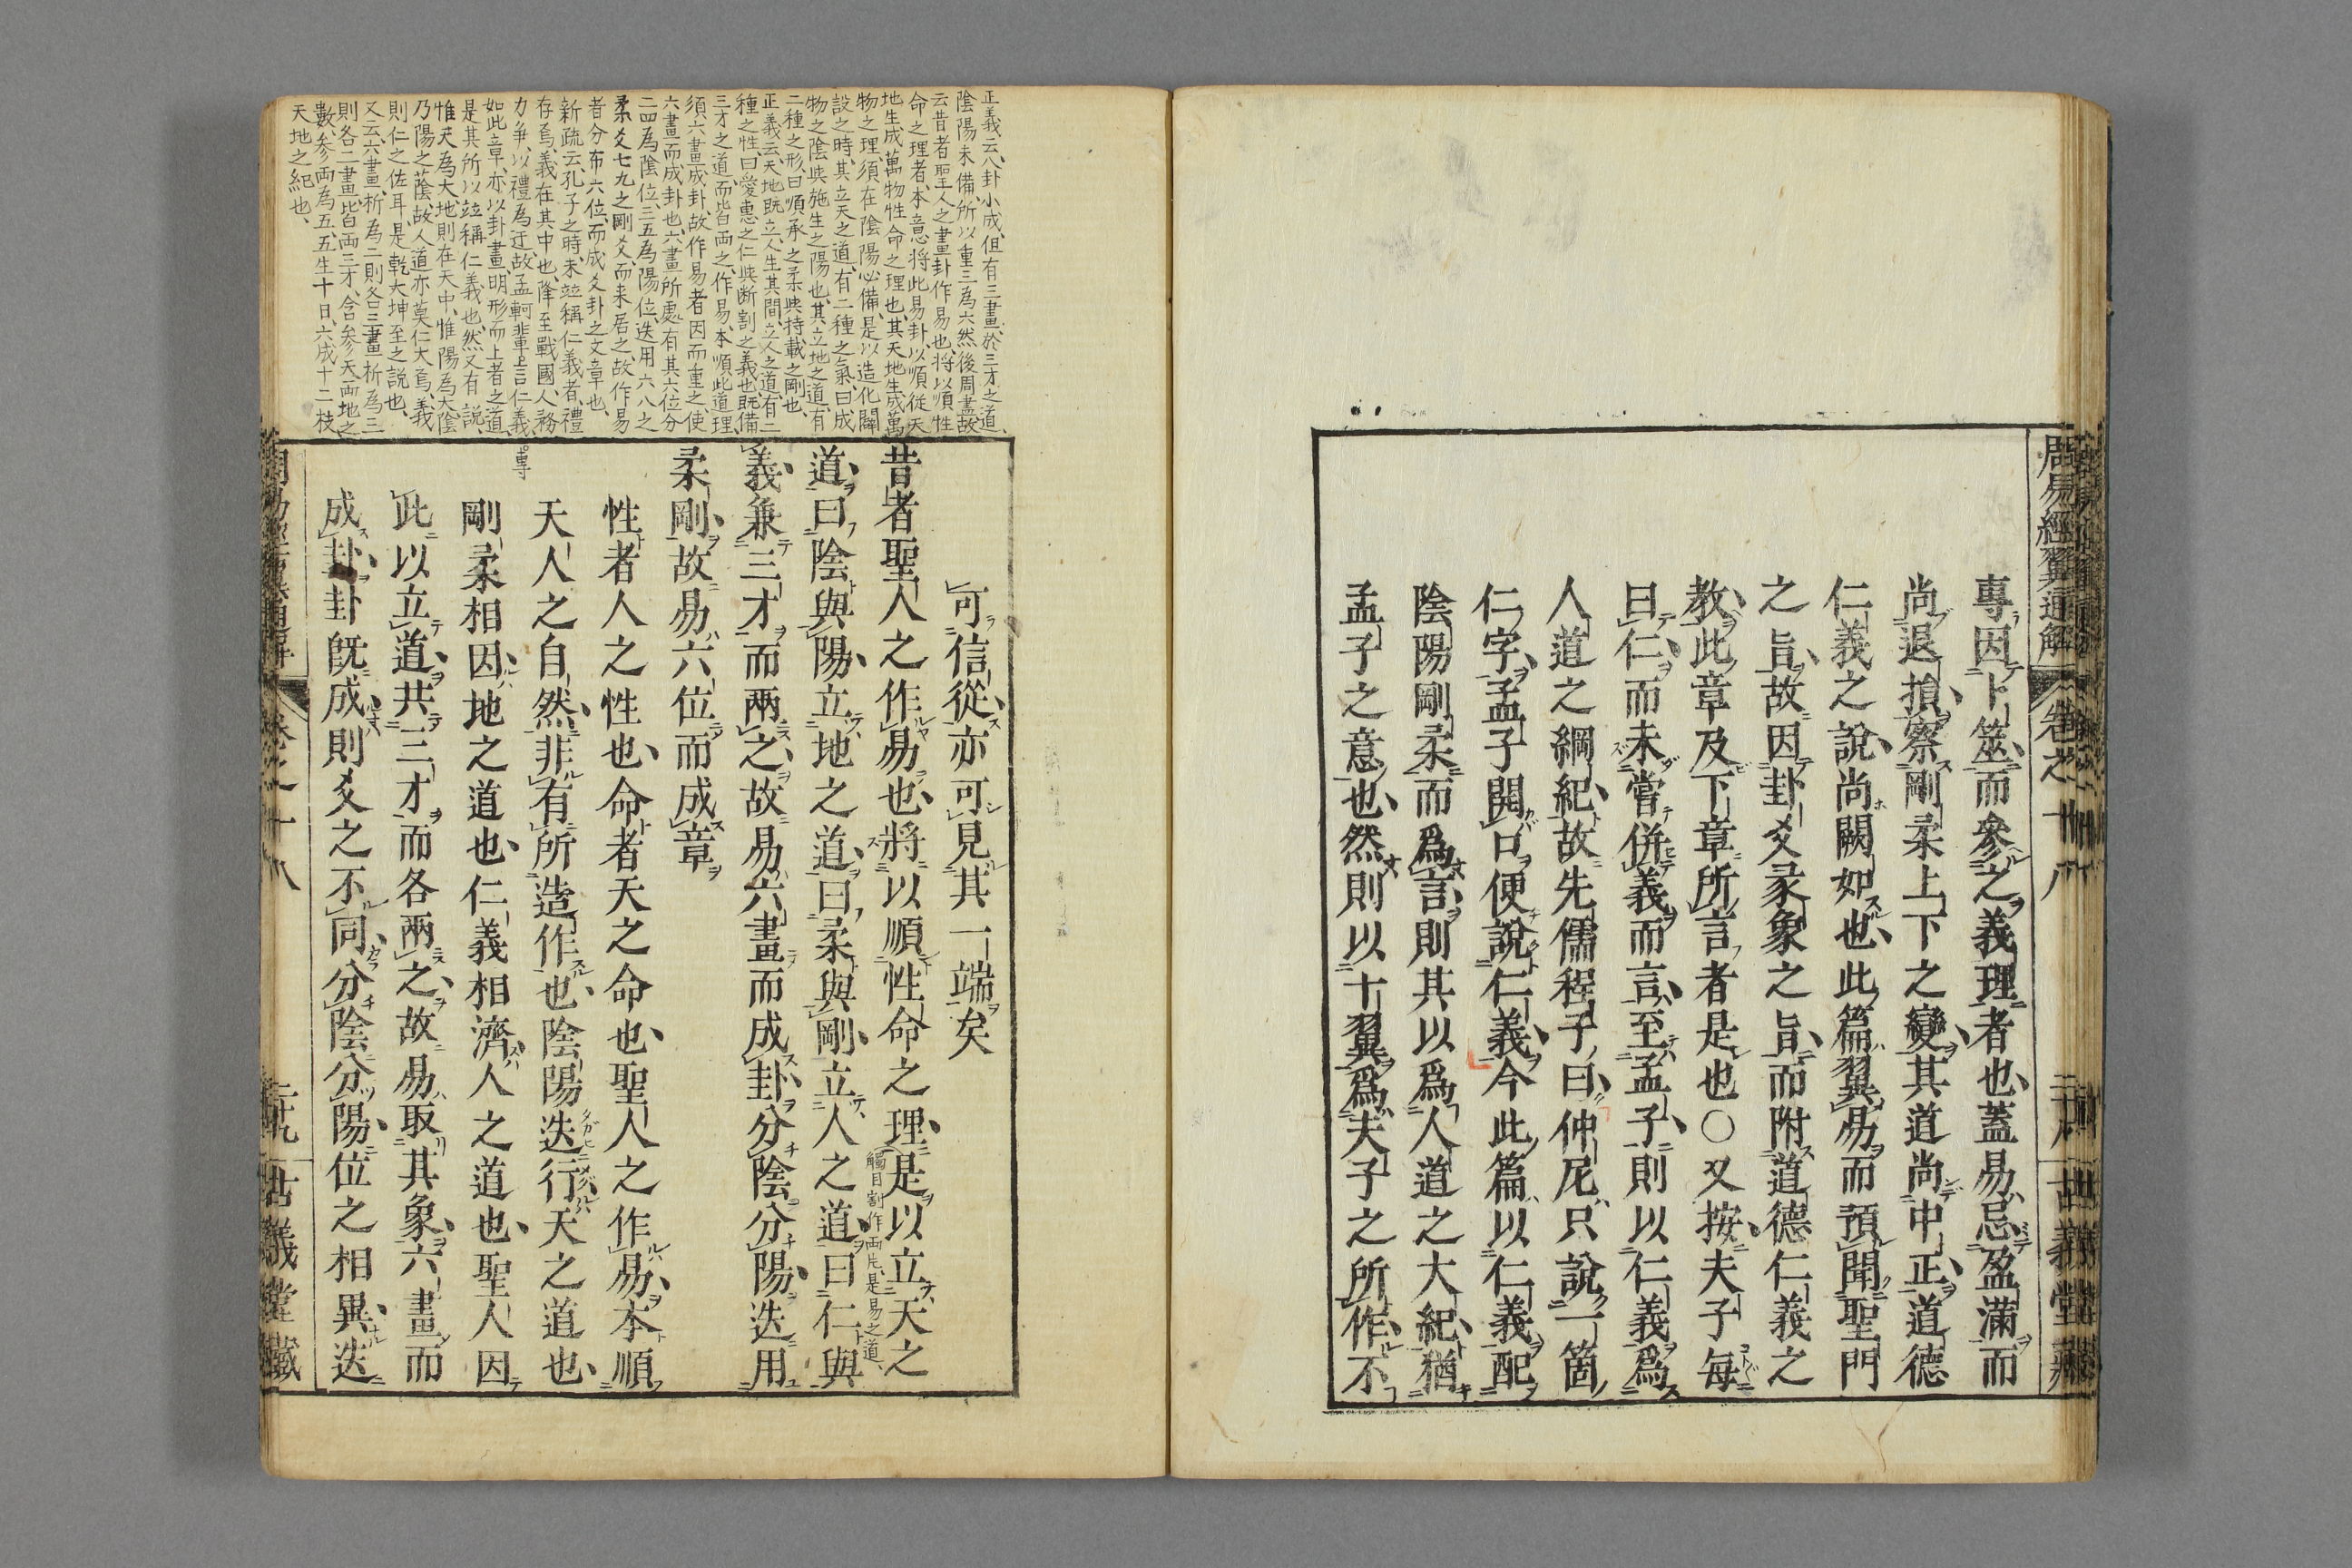 周易經翼通解
卷之十八
古義堂藏
專因卜筮而參之義理者也蓋易忌盈滿而
尚退損察剛柔上下之變其道尚中正道德
仁義之說尚闕如也此篇翼易而預聞聖門
之旨故因卦爻彖象之旨而附道德仁義之
教此章及下章所言者是也○又按夫子每
曰仁而未嘗併義而言至孟子則以仁義爲
人道之綱紀故先儒程子曰仲尼只說一箇
仁字孟子開口便說仁義今此篇以仁義配
陰陽剛柔而爲言則其以爲人道之大紀猶
孟子之意也然則以十翼爲夫子之所作不
正義云八卦小成但有三畫於三才之道
陰陽未備所以重三為六然後周盡故
云昔者聖人之畫卦作易也將以順性
命之理者本意將此易卦以順從天
地生成萬物性命之理也其天地生成萬
物之理須在陰陽必備是以造化闢
設之時其立天之道有二種之氣曰成
物之陰與施生之陽也其立地之道有
二種之形曰順承之柔與持載之剛也
正義云天地既立人生其間立人之道有二
種之性曰愛惠之仁與断割之義也既備
三才之道而皆両之作易本順此道理
須六畫成卦故作易者因而重之使
六畫而成卦也六畫所處有其六位分
二四為陰位三五為陽位迭用六八之
柔爻七九之剛爻而来居之故作易
者分布六位而成爻卦之文章也
新疏云孔子之時未竝稱仁義者禮
存焉義在其中也降至戰國人務
力爭以禮為迂故孟軻輩專言仁義
如此章亦以卦畫明形而上者之道
是其所以竝稱仁義也然又有說
惟天為大地則在天中惟陽為大陰
乃陽之蔭故人道亦莫仁大焉義
則仁之佐耳是乾大坤至之說也
又云六畫析為二則各三畫析為三
則各二畫皆両三才合参天両地之
數参両為五五生十日六成十二枝
天地之紀也
可信從亦可見其一端矣
昔者聖人之作易也將以順性命之理是以立天之
道曰陰與陽立地之道曰柔與剛立人之道曰仁與
觸目割作両片是易之道
義兼三才而兩之故易六畫而成卦分陰分陽迭用
柔剛故易六位而成章
性者人之性也命者天之命也聖人之作易本順
天人之自然非有所造作也陰陽迭行天之道也
剛柔相因地之道也仁義相濟人之道也聖人因
此以立道共三才而各兩之故易取其象六畫而
成卦卦旣成則爻之不同分陰分陽位之相異迭
卷之十八
古義堂藏